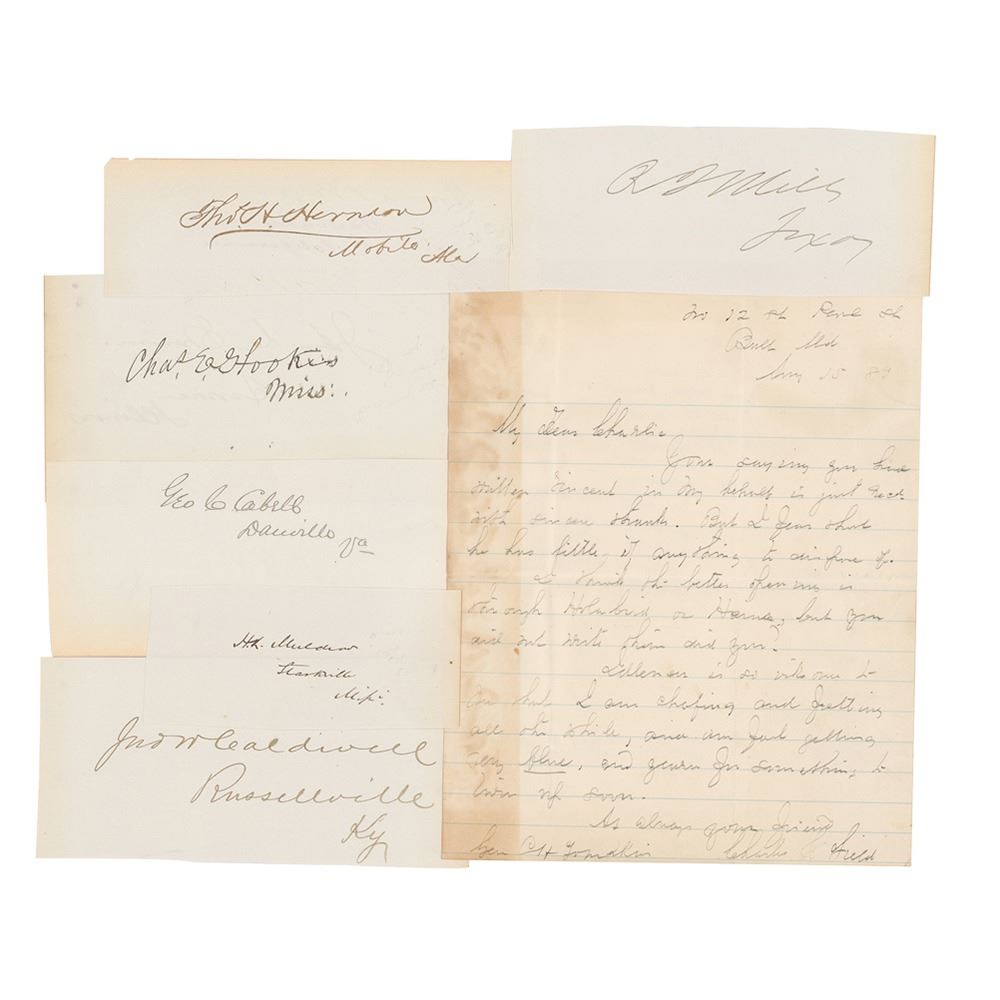 Tho. H. Herndon
Mobile Ala
R Q Mills
Texas
Chas. E. Hooker
Miss.
Geo C Cabell
Danville Va
H.L. Muldrow
Starkville
Mipi.
Jno W Caldwell
Russellville
Ky
No 12 St Paul St
Balt Md
15 89
My Dear Charlie
Your saying you have
written Vincent in my behalf is just recd
with sincere thanks. But I fear that
he has little if anything to dispose of.
I think the better opening is
through or but you
did not write them did you?
Idleness is so irksome to
me that I am chafing and fretting
all the while, and am just getting
very blue, and yearn for something to
turn up soon.
As always your friend
Gen C H Tompkins Charles W Field